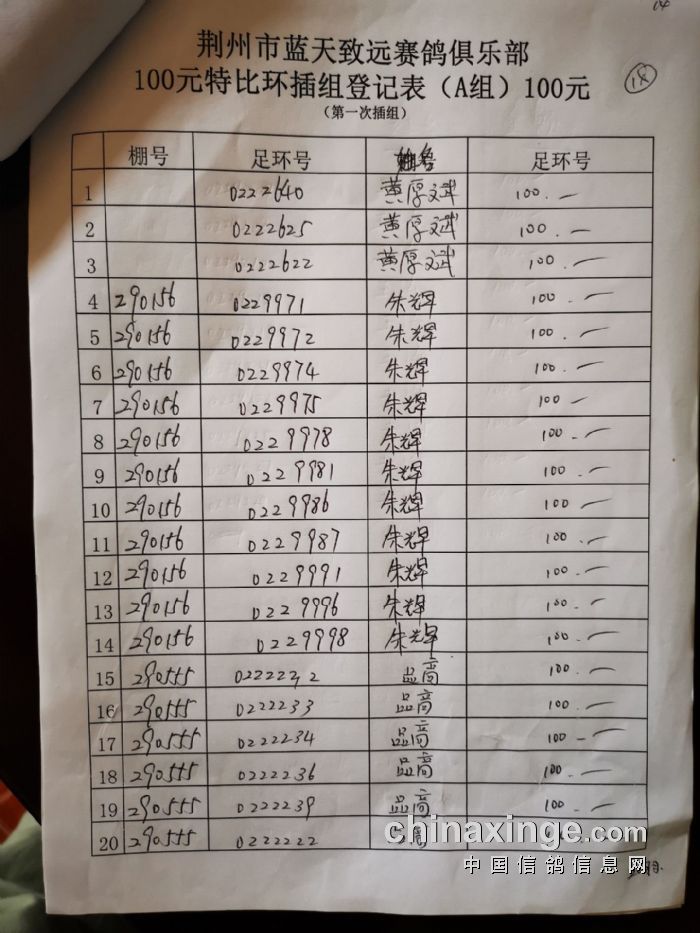 14
荆州市蓝天致远赛鸽俱乐部
100元特比环插组登记表（A组）100元
（第一次插组）
棚号 足环号 足环号
1 0222640 黄厚斌 100.—
2 0222625 黄厚斌 100.—
3 0222622 黄厚斌 100.—
4 290156 0229971 朱辉 100.—
5 290156 0229972 朱辉 100.—
6 290156 0229974 朱辉 100.—
7 290156 0229975 朱辉 100 —
8 290156 0229978 朱辉 100.—
9 290156 0229981 朱辉 100.—
10 290156 0229986 朱辉 100.—
11 290156 0229987 朱辉 100.—
12 290156 0229991 朱辉 100.—
13 290156 0229996 朱辉 100.—
14 290156 0229998 朱辉 100.—
15 290555 品高 100.—
16 290555 0222233 品高 100.—
17 290555 0222234 品高 100.—
18 290555 0222236 品高 100.—
19 290555 0222239 品高 100.—
20 290555 0222222
chinaxinge.com
中国信鸽信息网